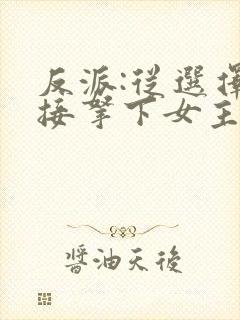 反派:從選擇
接拏下女主
醬油天後